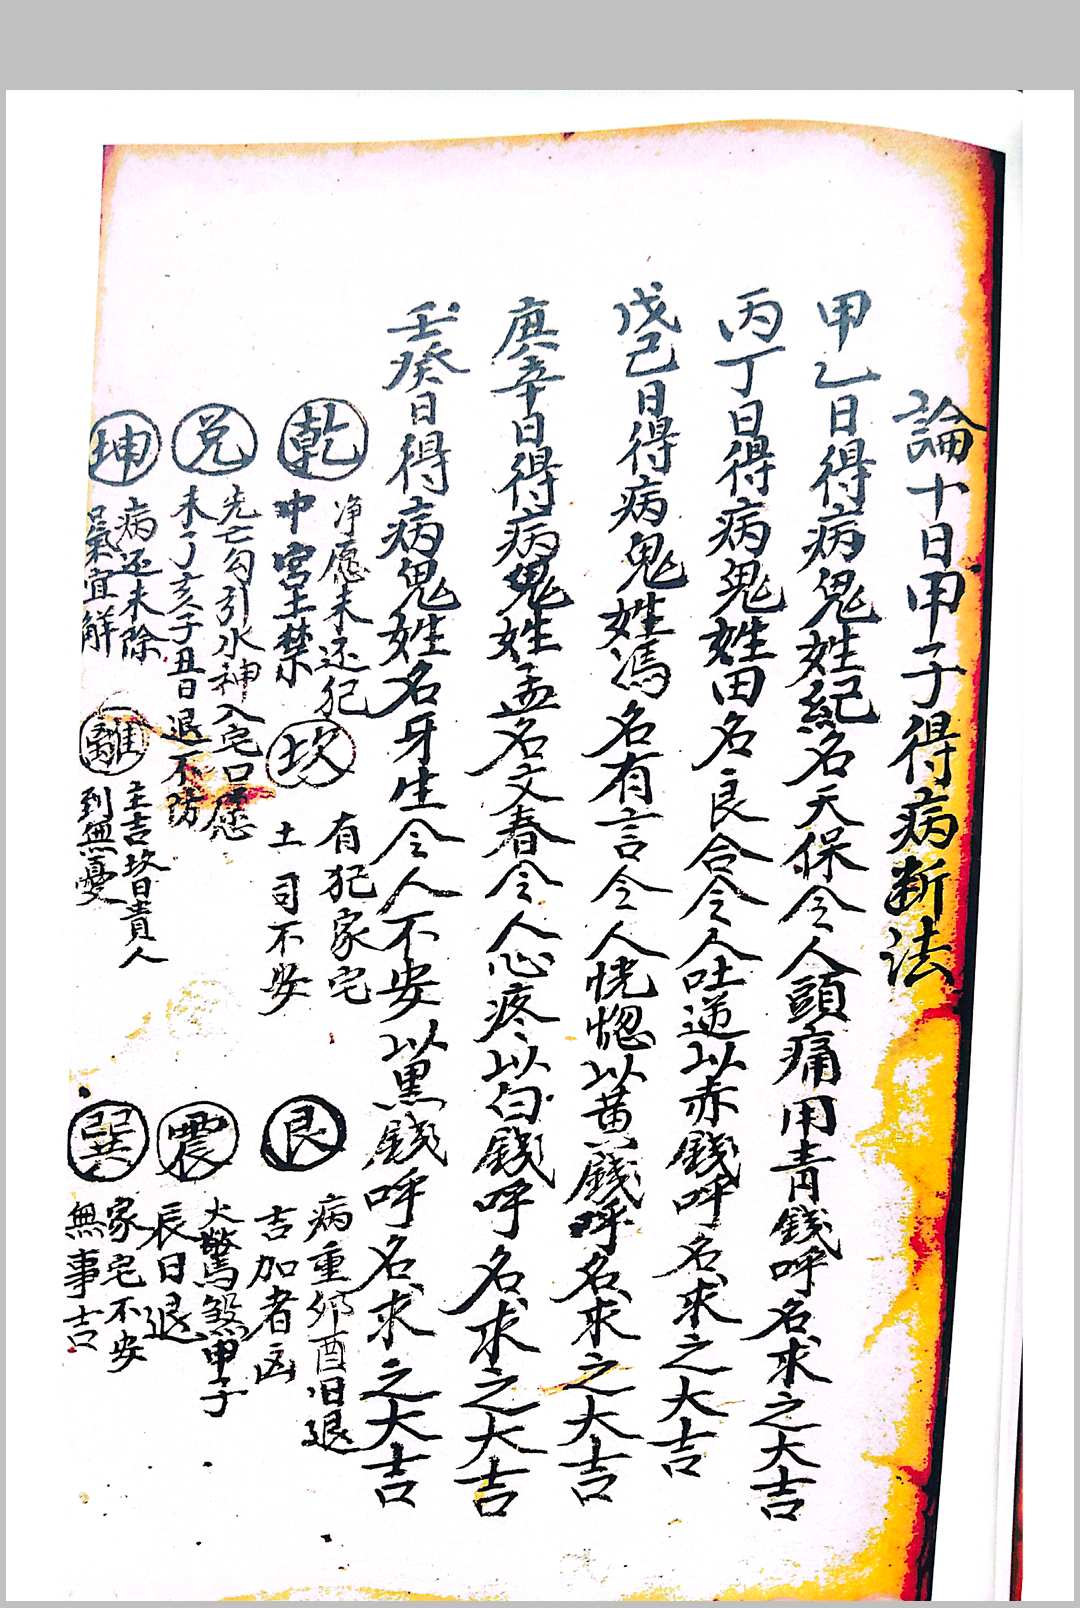 論十日甲子得病断法
甲乙日得病鬼姓紀名天保令人頭痛用青錢呼名求之大吉
丙丁日得病鬼姓田名良合令人吐逆以赤錢呼名求之大吉
戊己日得病鬼姓馮名有言令人恍惚以黃錢呼名求之大吉
庚辛日得病鬼姓孟名文春令人心疼以白錢呼名求之大吉
壬癸日得病鬼姓名牙生令人不安以黑錢呼名求之大吉
乾
净愿未还犯
中宮土禁
坎
有犯家宅
土司不安
艮
病重卯酉日退
吉加者凶
兌
先亡勾引水神入宅口愿
未了亥子丑日退不防
震
大驚煞甲子
辰日退
坤
病还未除
宜解
離
主吉坎日貴人
到無憂
巽
家宅不安
無事吉